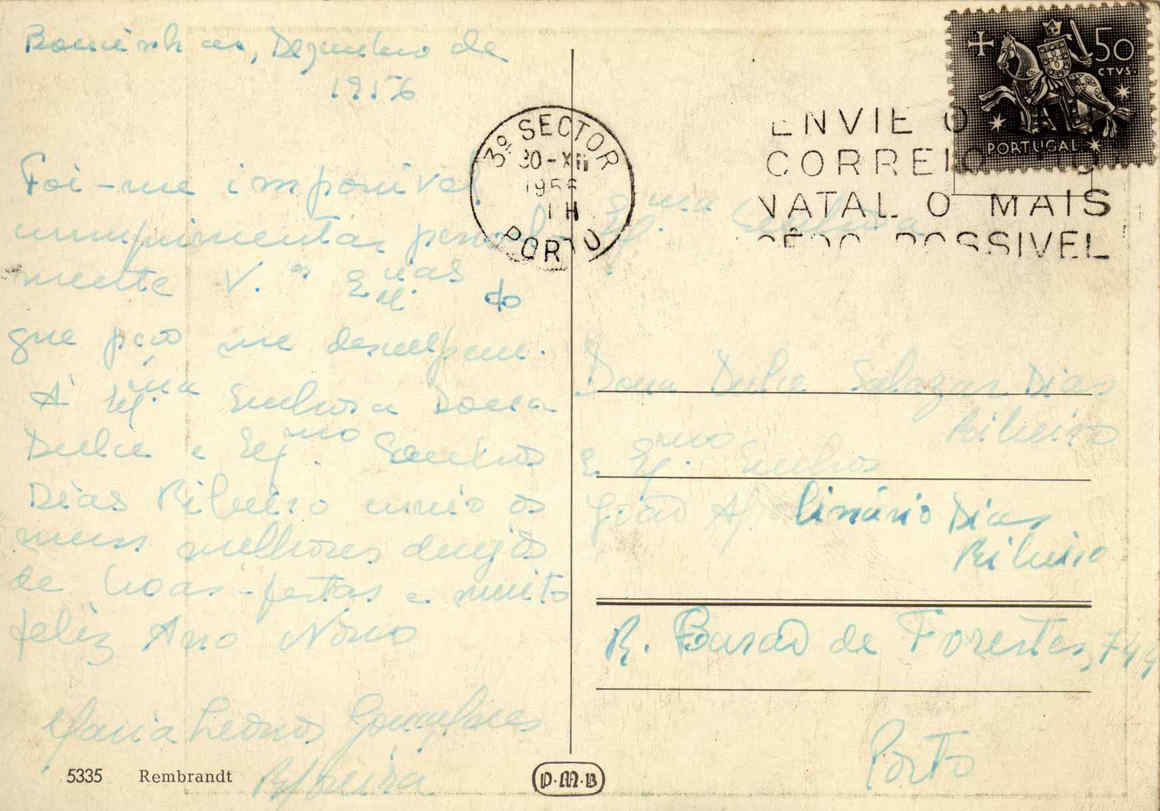 Dezembro de
1956
Foi-me impossivel
cumprimentar pessoal
mente V.as Ex.mas do
que peço me desculpem.
Á Ex.ma Senhora Dona
Dulce e Ex.mo Senhor
Dias Ribeiro envio os
meus melhores desejos
de boas-festas e muito
feliz Ano Novo
Maria Leonor Gonçalves
5335 Rembrandt
P.M.B
3º SECTOR
20-XII
1956
PORTO
ENVIE O
CORREIO
NATAL O MAIS
CÊDO POSSIVEL
50
CTVS.
PORTUGAL
Ex.ma Senhora
Dona Dulce Salazar Dias
Ribeiro
e Ex.mo Senhor
João Apolinário Dias
Ribeiro
R. Barão de Forrester,
Porto